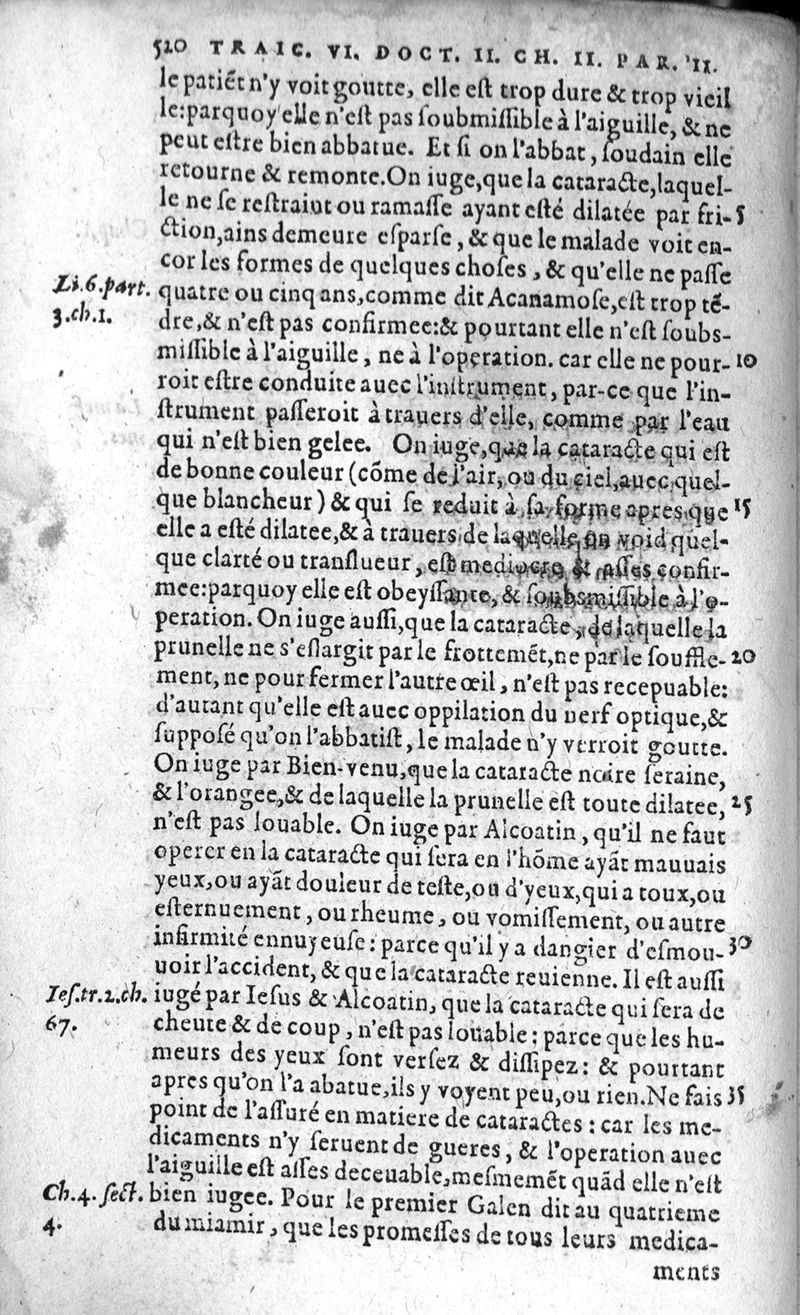 520 TRAIC. VI. DOCT. II. CH. II. PAR. II.
le patiẽt n'y voit goutte, elle eſt trop dure & trop vieil
le:parquoy elle n'eſt pas ſoubmiſſible à l'aiguille, & ne
peut eſtre bien abbatue. Et ſi on l'abbat, ſoudain elle
retourne & remonte.On iuge,que la cataracte,laquel-
le ne ſe reſtraint ou ramaſſe ayant eſté dilatée par fri- 5
ction,ains demeure eſparſe, & que le malade voit en-
cor les formes de quelques choſes, & qu'elle ne paſſe
Li.6.part. quatre ou cinq ans,comme dit Acanamoſe,eſt trop tẽ-
3.ch.1. dre,& n'eſt pas confirmee:& pourtant elle n'eſt ſoubs-
miſſible à l'aiguille, ne à l'operation. car elle ne pour- 10
roit eſtre conduite auec l'inſtrument, par-ce que l'in-
ſtrument paſſeroit à trauers d'elle, comme par l'eau
qui n'eſt bien gelee. On iuge,que la cataracte qui eſt
de bonne couleur (cõme de l'air, ou du ciel,auec quel-
que blancheur) & qui ſe reduit à ſa forme apres que 15
elle a eſté dilatee,& à trauers de laquelle on void quel-
que clarté ou tranſlueur, eſt mediocre & aſſes confir-
mee:parquoy elle eſt obeyſſante, & ſoubsmiſſible à l'o-
peration. On iuge auſſi,que la cataracte, de laquelle la
prunelle ne s'eſlargit par le frottemẽt,ne par le ſouffle- 20
ment, ne pour fermer l'autre œil, n'eſt pas recepuable:
d'autant qu'elle eſt auec oppilation du nerf optique,&
ſuppoſé qu'on l'abbatiſt, le malade n'y verroit goutte.
On iuge par Bien-venu,que la cataracte noire ſeraine,
& l'orangee,& de laquelle la prunelle eſt toute dilatee, 25
n'eſt pas louable. On iuge par Alcoatin, qu'il ne faut
operer en la cataracte qui ſera en l'hõme ayãt mauuais
yeux,ou ayãt douleur de teſte,ou d'yeux,qui a toux,ou
eſternuement, ou rheume, ou vomiſſement, ou autre
infirmité ennuyeuſe: parce qu'il y a dangier d'eſmou- 30
uoir l'accident, & que la cataracte reuienne. Il eſt auſſi
Ieſ.tr.2.ch. iugé par Ieſus & Alcoatin, que la cataracte qui ſera de
67. cheute & de coup, n'eſt pas louable: parce que les hu-
meurs des yeux ſont verſez & diſſipez: & pourtant
apres qu'on l'a abatue,ils y voyent peu,ou rien.Ne fais 35
point de l'aſſuré en matiere de cataractes: car les me-
dicaments n'y ſeruent de gueres, & l'operation auec
l'aiguille eſt aſſes deceuable,meſmemẽt quãd elle n'eſt
Ch.4.ſect. bien iugee. Pour le premier Galen dit au quatrieme
4. du miamir, que les promeſſes de tous leurs medica-
ments